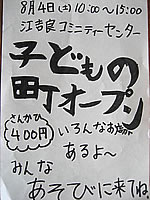 8月4日(土)10:00〜15:00
江吉良コミニティーセンター
子どもの
町オープン
さんかひ
400円
いろんなお店が
あるよ〜
みんな
あそびに来てね